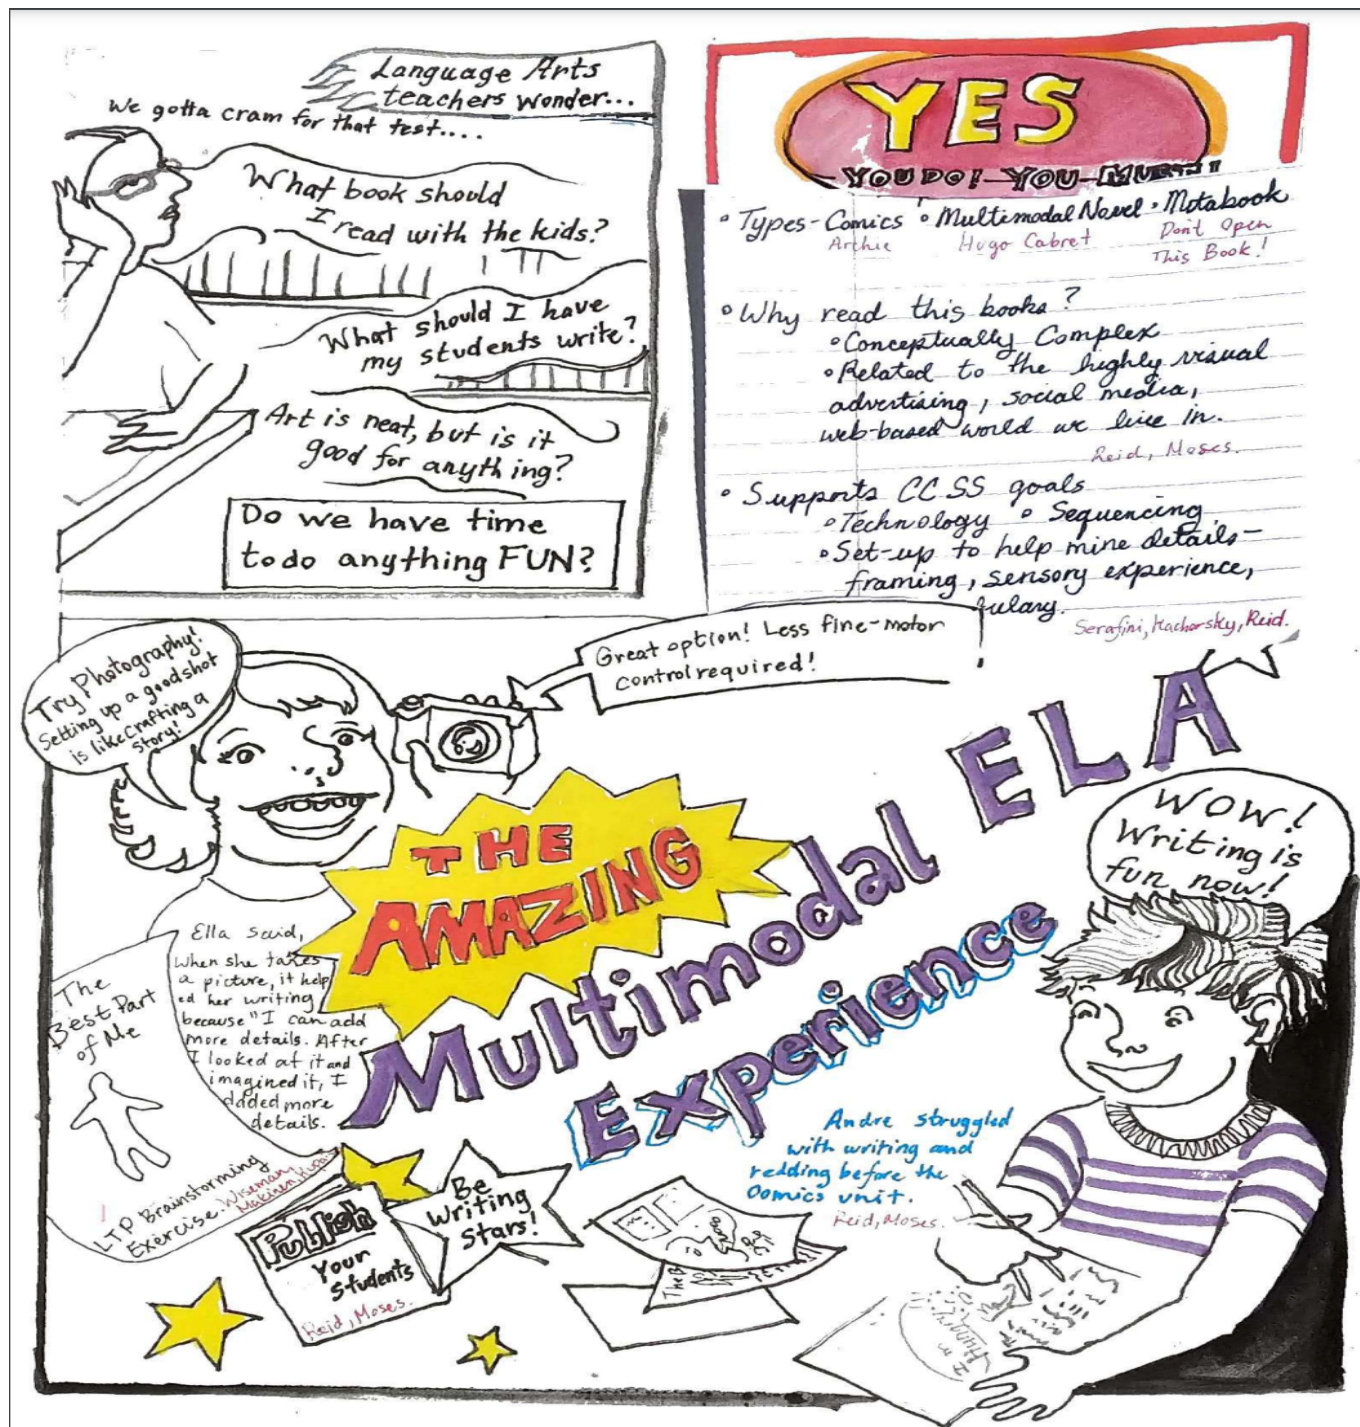 Language Arts
teachers wonder...
We gotta cram for that test....
What book should
I read with the kids?
What should I have
my students write?
Art is neat, but is it
good for anything?
Do we have time
to do anything FUN?
YES
YOU DO! YOU MUST!
• Types - Comics • Multimodal Novel • Motabook
Archie Hugo Cabret Don't Open
This Book!
• Why read this books?
• Conceptually Complex
• Related to the highly visual
advertising, social media,
web-based world we live in.
Reid, Moses.
• Supports CCSS goals
• Technology • Sequencing
• Set-up to help mine details-
framing, sensory experience,
ulary.
Serafini, Kachorsky, Reid.
Try Photography!
Setting up a good shot
is like crafting a
story!
Great option! Less fine-motor
control required!
THE
AMAZING
Multimodal ELA
Experience
WOW!
Writing is
fun, now!
Ella said,
when she takes
a picture, it help
ed her writing
because "I can add
more details. After
I looked at it and
imagined it, I
daded more
details.
The
Best Part
of Me
LTP Brainstorming
Exercise. Wiseman,
Makinen,
Publish
Your
Students
Reid, Moses.
Be
Writing
Stars!
Andre struggled
with writing and
redding before the
Oomics unit.
Reid, Moses.